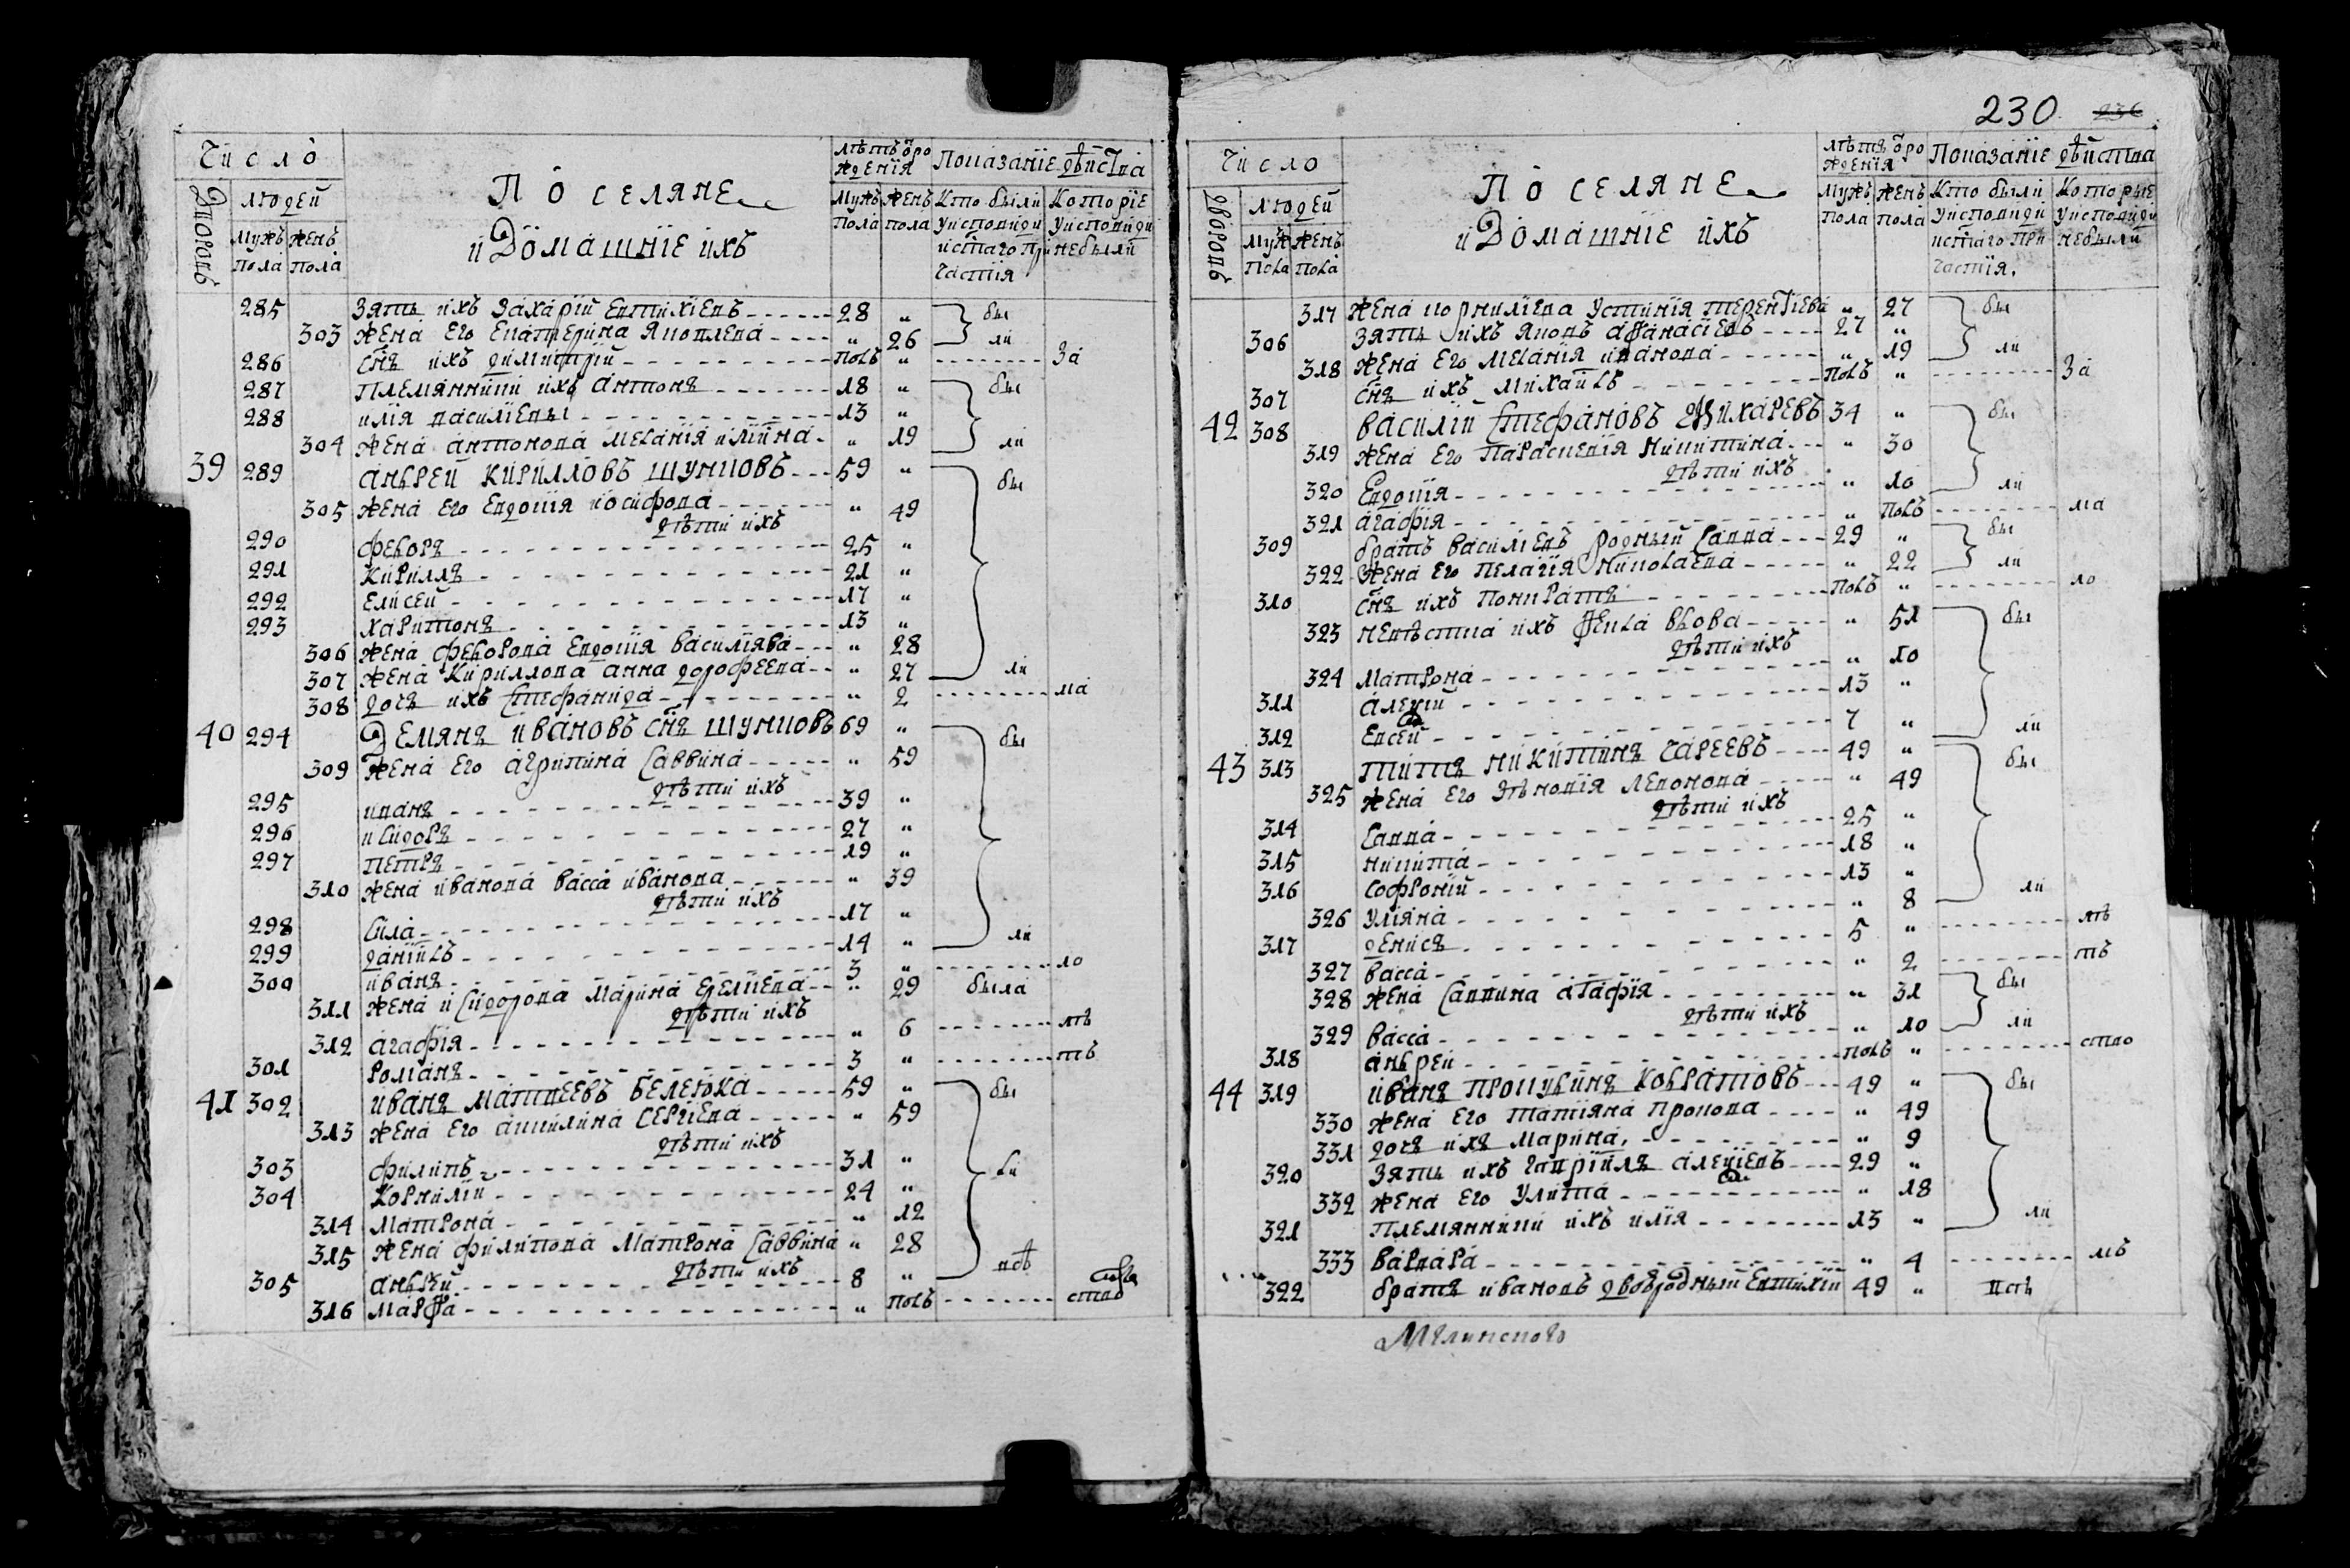 Число
Поселяне
и Домашніе ихъ
лѣтъ ѿ рожденія
Показаніе дѣйства
Дворовъ
людей
Мужъ пола
Женъ пола
Мужъ пола
Женъ пола
Кто были у исповѣди и с͠таго причастія
Которіе у исповѣди небыли
285 Зять ихъ Захарій Евтихіевъ 28 „ бы
303 Жена Его Екатерина Яковлева „ 26 ли
286 Сн͠ъ ихъ димитрій полъ „ за
287 Племянники ихъ антонъ 18 „ бы
288 илія василіевы 13 „
304 Жена антонова Меланія иліина „ 19 ли
39 289 андрей Кирилловъ Шунковъ 59 „ бы
305 Жена Его Евдокія іосифова „ 49
дѣти ихъ
290 федоръ 25 „
291 Кириллъ 21 „
292 Елисей 17 „
293 Харитонъ 13 „
306 Жена федорова Евдокія василіява „ 28
307 Жена Кириллова анна дорофеева „ 27 ли
308 дочъ ихъ Стефанида „ 2 ма
40 294 Демянъ ивановъ сн͠ъ Шунковъ 69 „ бы
309 Жена Его агрипина Саввина „ 59
дѣти ихъ
295 иванъ 39 „
296 исидоръ 27 „
297 Петръ 19 „
310 Жена иванова васса иванова „ 39
дѣти ихъ
298 Сила 17 „
299 даніилъ 14 „ ли
300 иванъ 3 „ ло
311 Жена исидорова Марина Еремиева „ 29 была
дѣти ихъ
312 агафія „ 6 лѣ
301 Романъ 3 „ тъ
41 302 иванъ Матвеевъ Белеюка 59 „ бы
313 Жена Его акилина Сергіева „ 59
дѣти ихъ
303 филипъ 31 „ ли
304 Корнилій 24 „
314 Матрона „ 12
315 Жена филипова Матрона Саввина „ 28
дѣти ихъ
305 андрей 8 „ всѣ
316 Марфа „ полъ ство
230
236
Число
Поселяне
и Домашніе ихъ
лѣтъ ѿ рожденія
Показаніе дѣйства
дворовъ
людей
Муж пола
Женъ пола
Мужъ пола
Женъ пола
Кто были у исповѣди и с͠таго причастія.
Которые у исповѣди небыли
317 Жена корниліева Устинія терентіева „ 27 бы
306 Зять ихъ яковъ афанасіевъ 27 „
318 Жена Его Меланія иванова „ 19 ли
307 сн͠ъ ихъ Михаилъ полъ „ за
42 308 василій Стефановъ 34 „ бы
319 Жена Его Параскевія Никитина „ 30
дѣти ихъ
320 Евдокія „ 10 ли
321 агафія „ полъ ма
309 братъ василіевъ родный Савва 29 „ бы
322 Жена Его Пелагія Николаева „ 22 ли
310 сн͠ъ ихъ Понкратъ полъ „ ло
323 невѣстка ихъ Фекла вдова „ 51 бы
дѣти ихъ
324 Матрона „ 10
311 алекій 13 „
312 Евсей 7 „ ли
43 313 Титъ Никитинъ Чареевъ 49 „ бы
325 Жена Его Зѣновія Левонова „ 49
дѣти ихъ
314 Савва 25 „
315 никита 18 „
316 Софроній 13 „
326 Уліяна „ 8 ли
317 денисъ 5 „ лѣ
327 васса „ 2 тъ
328 Жена Саввина агафія „ 31 бы
дѣти ихъ
329 васса „ 10 ли
318 андрей полъ „ ство
44 319 иванъ Прокудинъ Кодратовъ 49 „ бы
330 Жена Его татіяна прокова „ 49
331 дочъ ихъ Марина „ 9
320 Зять ихъ гавріилъ алекіевъ 29 „
332 Жена Его Улита „ 18
321 Племянники ихъ илія 13 „ ли
333 варвара „ 4 мъ
322 братъ ивановъ двоюродный Евтихій 49 „